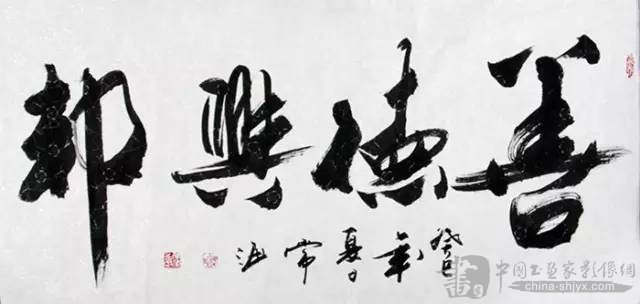 善德興邦
癸巳年夏日常
書
中國书画家影像網
china-shjyx.com